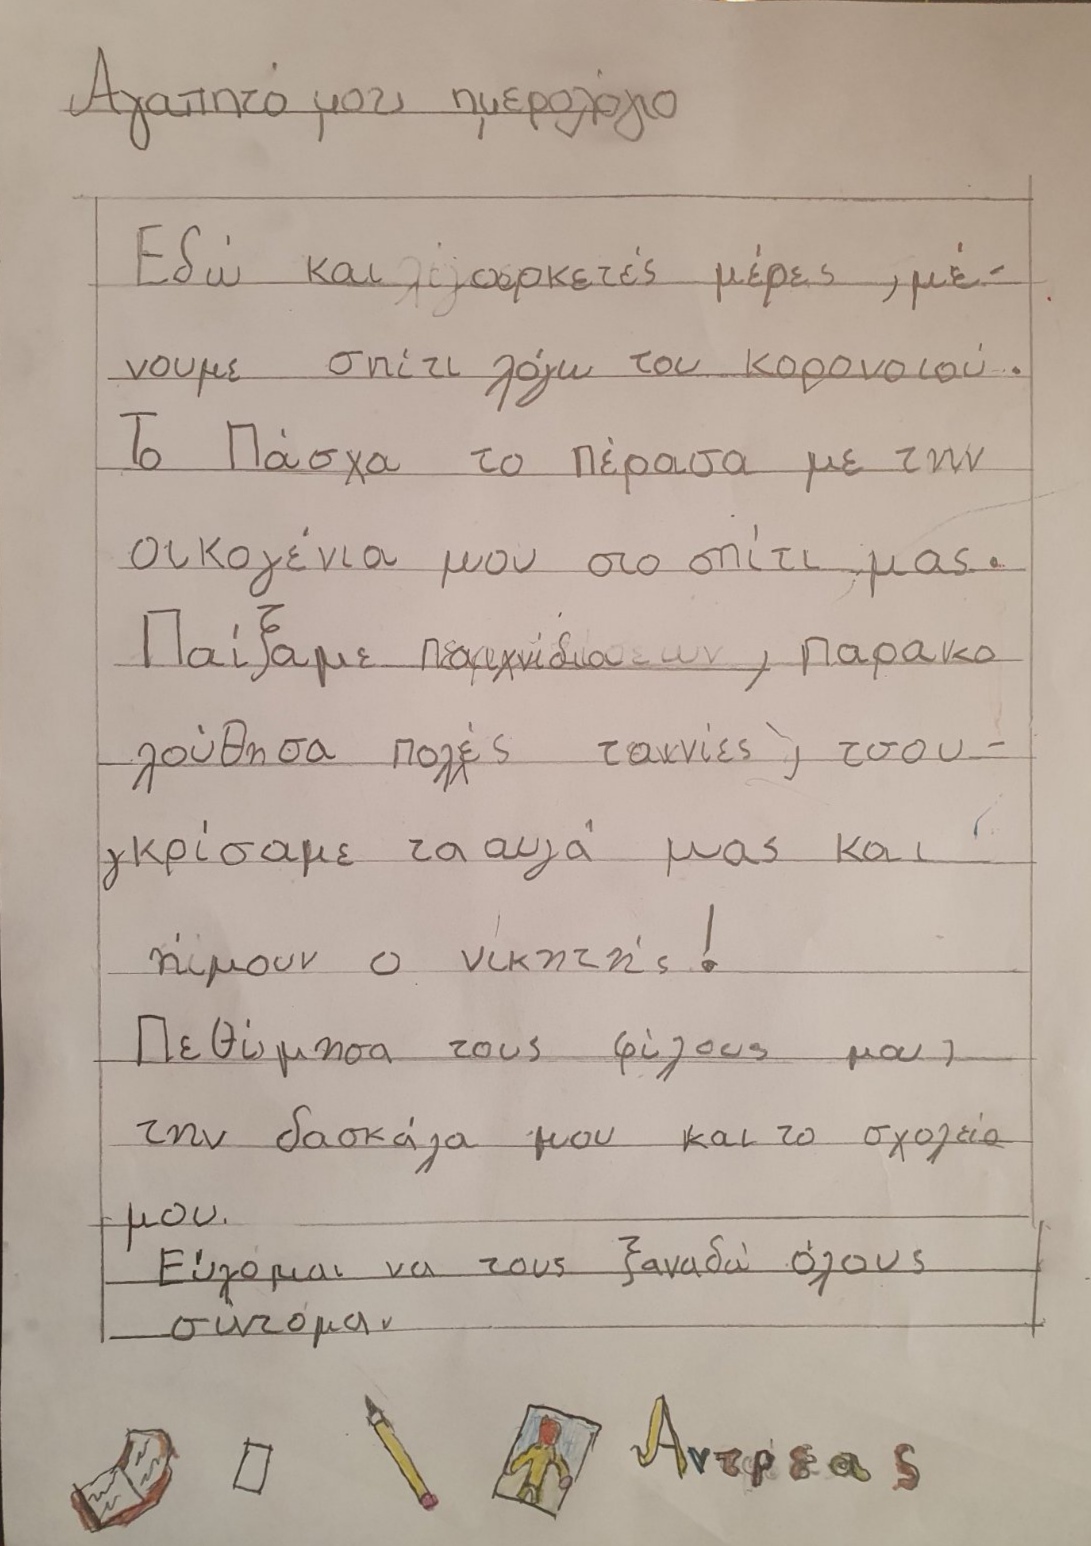 Αγαπητό μου ημερολόγιο
Εδώ και αρκετές μέρες , μέ-
νουμε σπίτι λόγω του κορονοιού.
Το Πάσχα το πέρασα με την
οικογένια μου στο σπίτι μας.
Παίξαμε , παρακο
λούθησα πολές ταινίες , τσου-
γκρίσαμε τα αυγά μας και
ήμουν ο νικητής!
Πεθύμησα τους φίλους μου,
την δασκάλα μου και το σχολείο
μου.
Εύχομαι να τους ξαναδώ όλους
σύντόμα.
Αντρέας